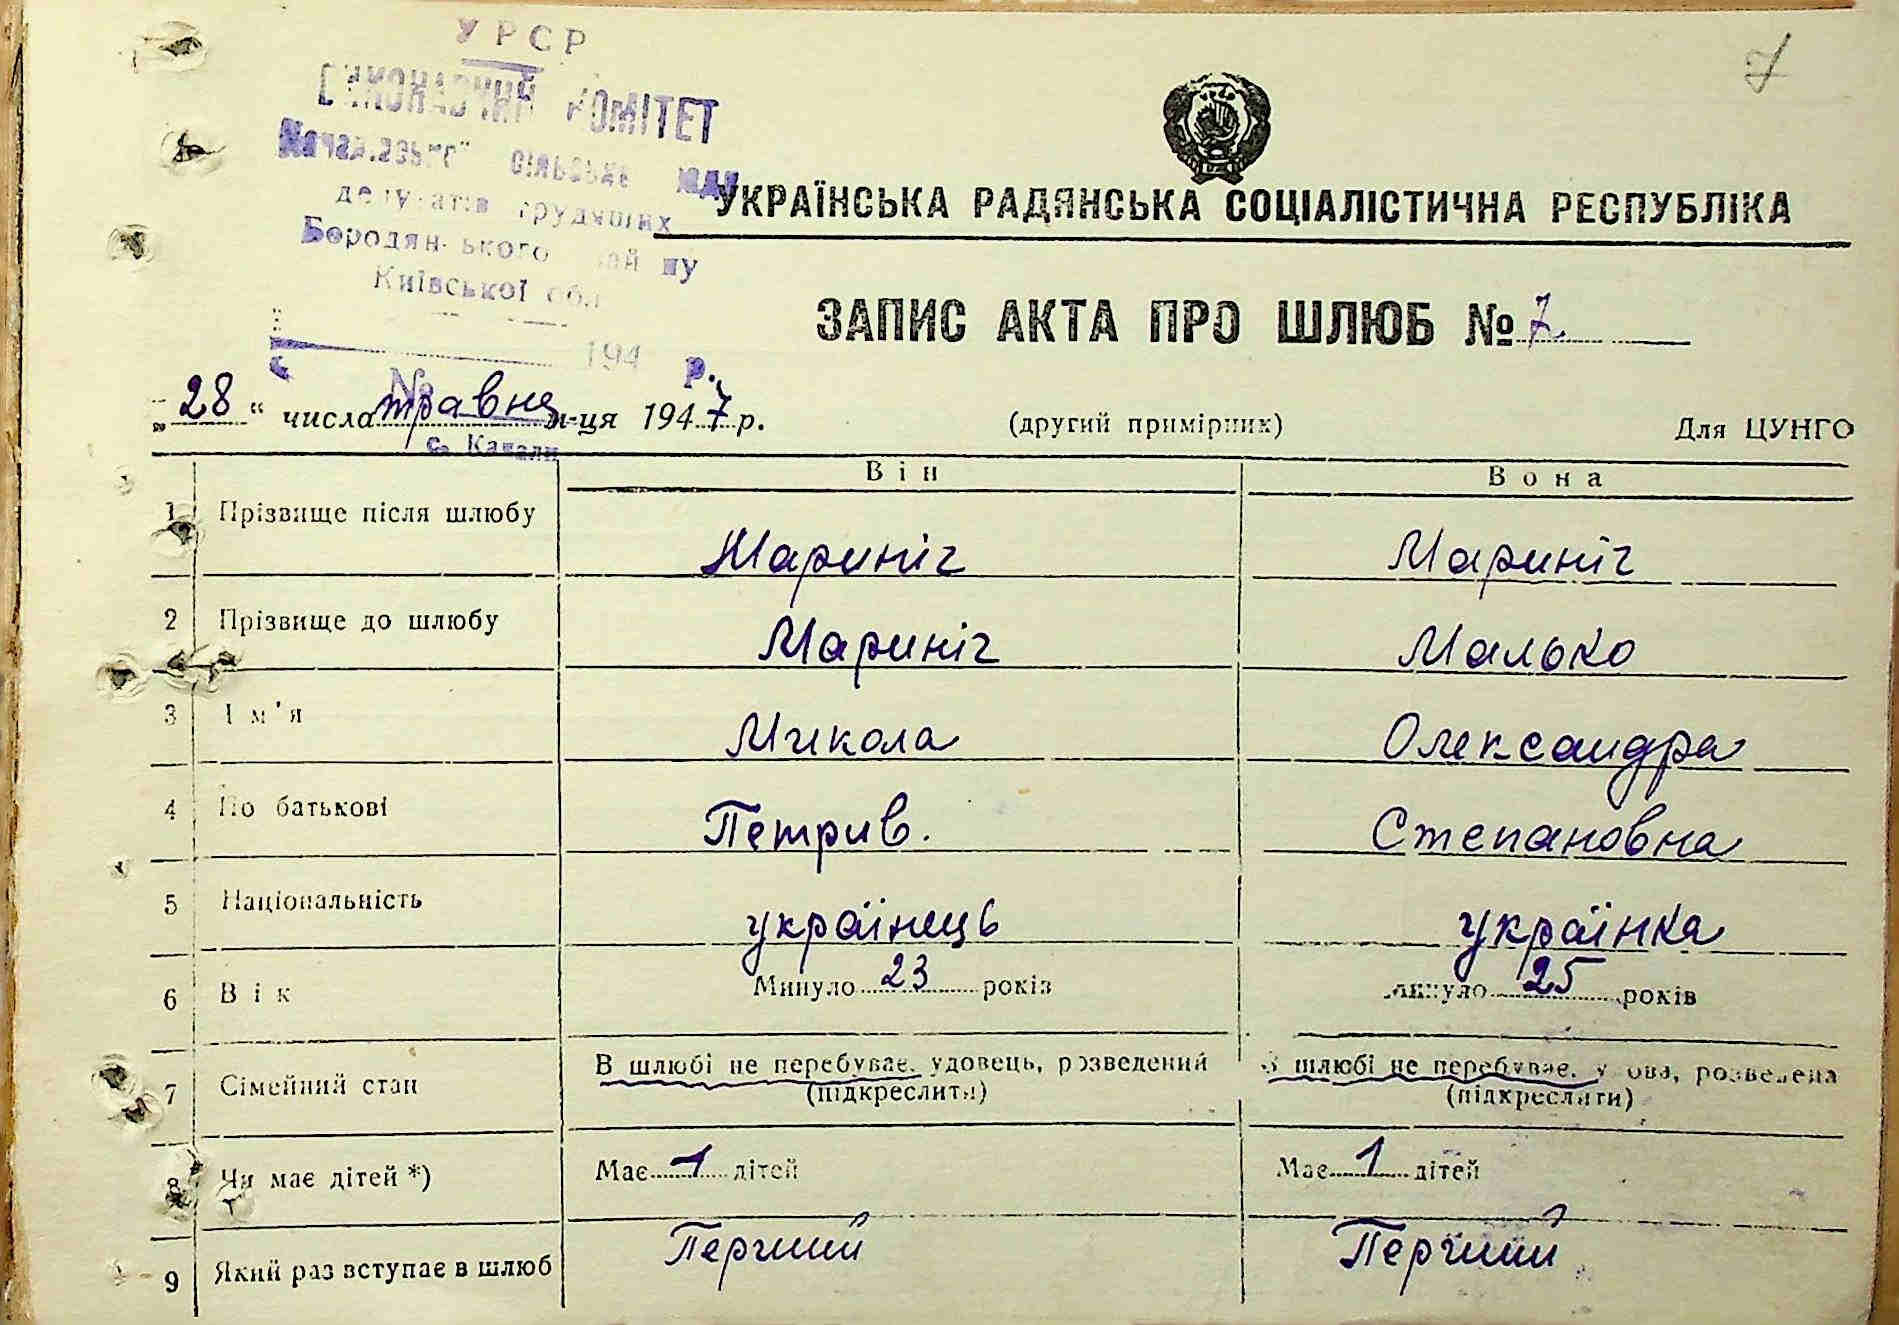 УРСР
ВИКОНАВЧИЙ КОМІТЕТ
сільської ради
депутатів трудящих
Бородянського району
Київської обл.
194 р.
№
7
УКРАЇНСЬКА РАДЯНСЬКА СОЦІАЛІСТИЧНА РЕСПУБЛІКА
ЗАПИС АКТА ПРО ШЛЮБ № 7.
„28“ числа травня м-ця 1947 р. (другий примірник) Для ЦУНГО
с.
Він Вона
1 Прізвище після шлюбу Мариніч Мариніч
2 Прізвище до шлюбу Мариніч Малько
3 Ім'я Микола Олександра
4 По батькові Петрив. Степановна
5 Національність українець українка
6 Вік Минуло 23 років Минуло 25 років
7 Сімейний стан В шлюбі не перебуває, удовець, розведений В шлюбі не перебуває, удова, розведена
(підкреслити) (підкреслити)
8 Чи має дітей *) Має 1 дітей Має 1 дітей
9 Який раз вступає в шлюб Перчий Перчий